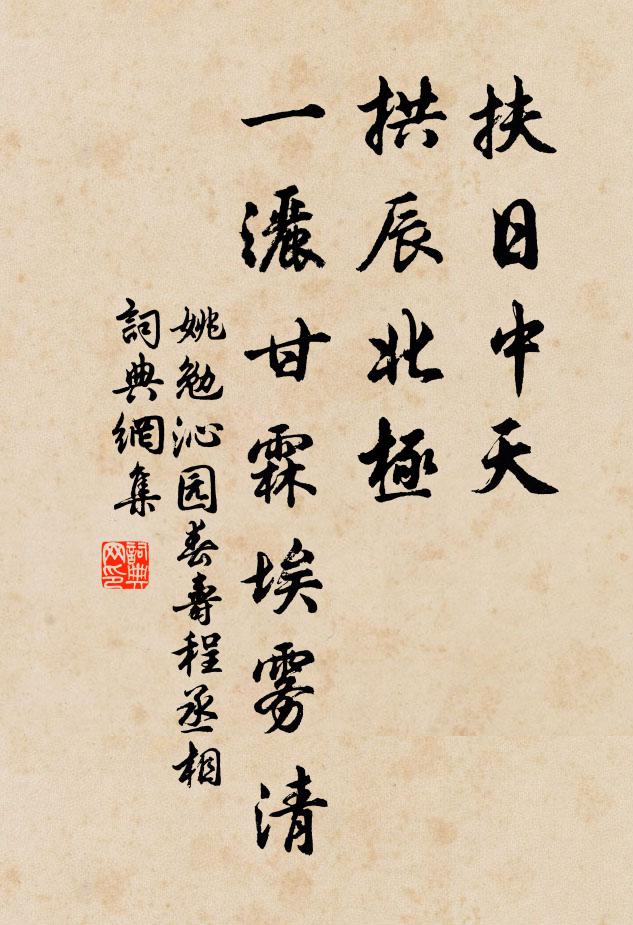 扶日中天
拱辰北極
一灑甘霖埃霧清
姚勉沁园春壽程丞相
詞典網集
詞典网印